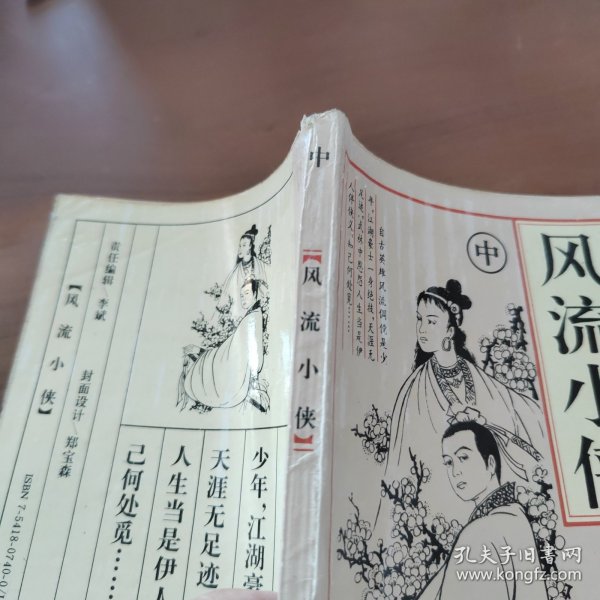 中
风流小侠
自古英雄风流倜傥是少
年,江湖豪士一身绝技,天涯无
足迹,武林中恩怨人生当是伊
人伴侠义,知己何处觅……
中
【风流小侠】
少年,江湖豪
天涯无足迹
人生当是伊人
己何处觅……
责任编辑 李斌
封面设计 郑宝森
【风流小侠】
ISBN 7-5418-0740-0/
孔夫子旧书网
www.kongfz.com